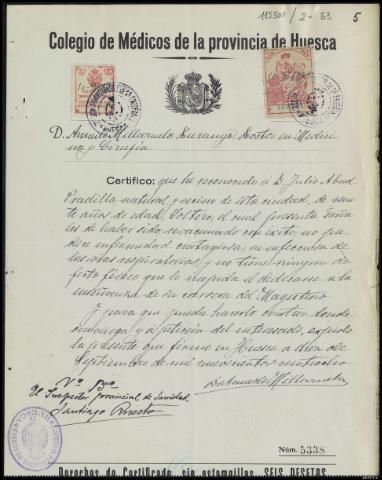 115300 / 2 - 53 5
Colegio de Médicos de la provincia de Huesca
D. Amado Millaruelo Durango, Doctor en Medici
na y Cirugía
Certifico: que he reconocido a D. Julio Abad
Pradilla, natural y vecino de esta ciudad, de vein
te años de edad, soltero, el cual presenta seña
les de haber sido vacunado con exito, no pa
dece enfermedad contagiosa, ni infecciosa de
las vias respiratorias y no tiene ningun de
fecto físico que le impida el dedicarse a la
enseñanza de su carrera del Magisterio
Y para que pueda hacerlo constar donde
convenga y a peticion del interesado, expido
la presente que firmo en Huesca a diez de
Septiembre de mil novecientos veintiocho
Dr Amado Millaruelo
Vº Bº
El Inspector provincial de Sanidad
Santiago
Núm. 5338
Derechos de Certificado, sin estampillas, SEIS PESETAS